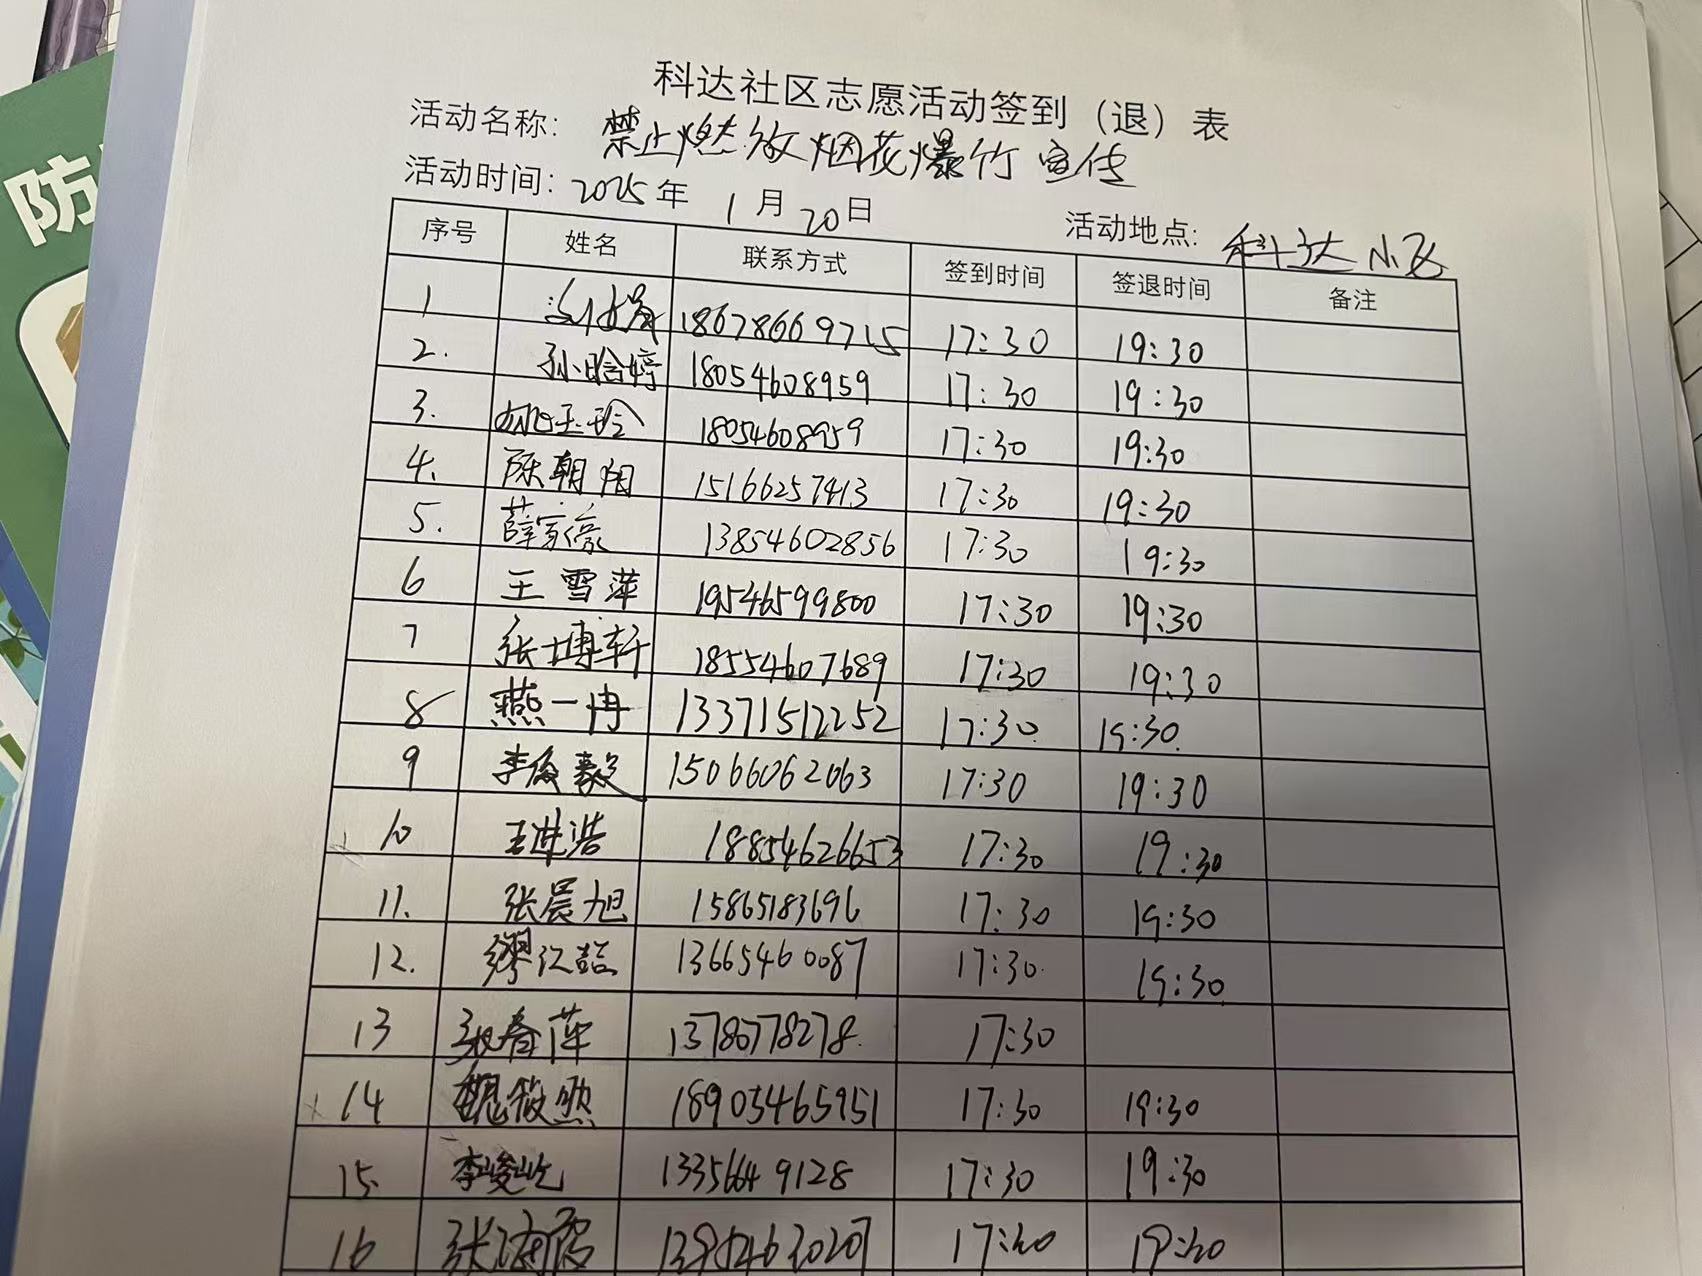 防
科达社区志愿活动签到（退）表
活动名称: 禁止燃放烟花爆竹宣传
活动时间: 2025年 1月20日 活动地点: 科达小区
序号 姓名 联系方式 签到时间 签退时间 备注
1 18678669715 17:30 19:30
2. 孙晗婷 18054608959 17:30 19:30
3. 18054608959 17:30 19:30
4. 陈朝阳 15166257413 17:30 19:30
5. 薛家豪 13854602856 17:30 19:30
6 王雪萍 19546599800 17:30 19:30
7 张博轩 18554607689 17:30 19:30
8 燕一冉 13371512252 17:30 19:30
9 李俊毅 15066062063 17:30 19:30
10 王进浩 18854626653 17:30 19:30
11. 张晨旭 15865183696 17:30 19:30
12. 缪江喆 13665460087 17:30 19:30
13 张春萍 13780778278 17:30
14 魏筱然 18905465951 17:30 19:30
15. 李峻屹 13356649128 17:30 19:30
16 张海霞 17:30 19:30